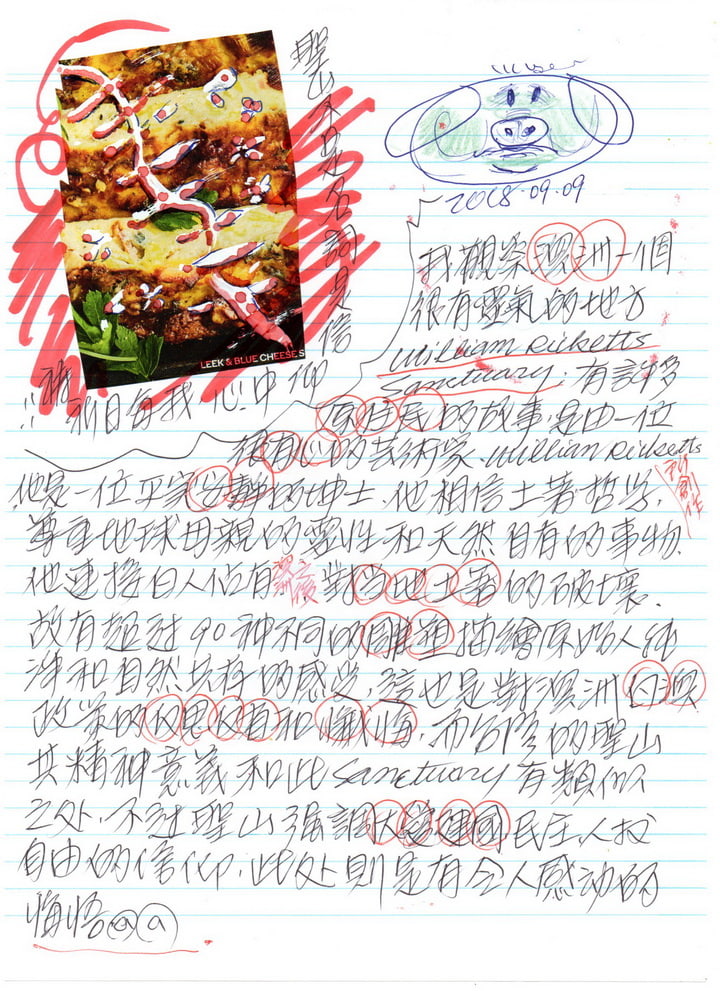 聖山不是名詞是信仰
神利日月自我心中
LEEK & BLUE CHEESES
2018.09.09
我觀察澳洲一個
很有靈氣的地方
William Ricketts
Sanctuary; 有許多
原住民的故事.是由一位
很有心的芸術家.William Ricketts
創作
他是一位平家安靜的紳士.他相信土著哲學,
尊重地球母親的靈性和天然自有的事物.
他連接白人佔有澳洲之後對当地土著的破壞.
故有超过90种不同的雕塑描繪原始人純
淨和自然共存的感覚,這也是對澳洲白澳
政策的反思反省和懺悔,而台灣的聖山
其精神意義和此Sanctuary有類似
之处,不过聖山强調獨建國民主人权
自由的信仰.此处則是有令人感动的
悔悟@@